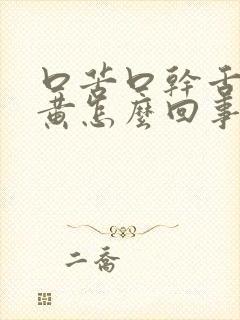 口苦口幹舌
黄怎麼回事
二喬